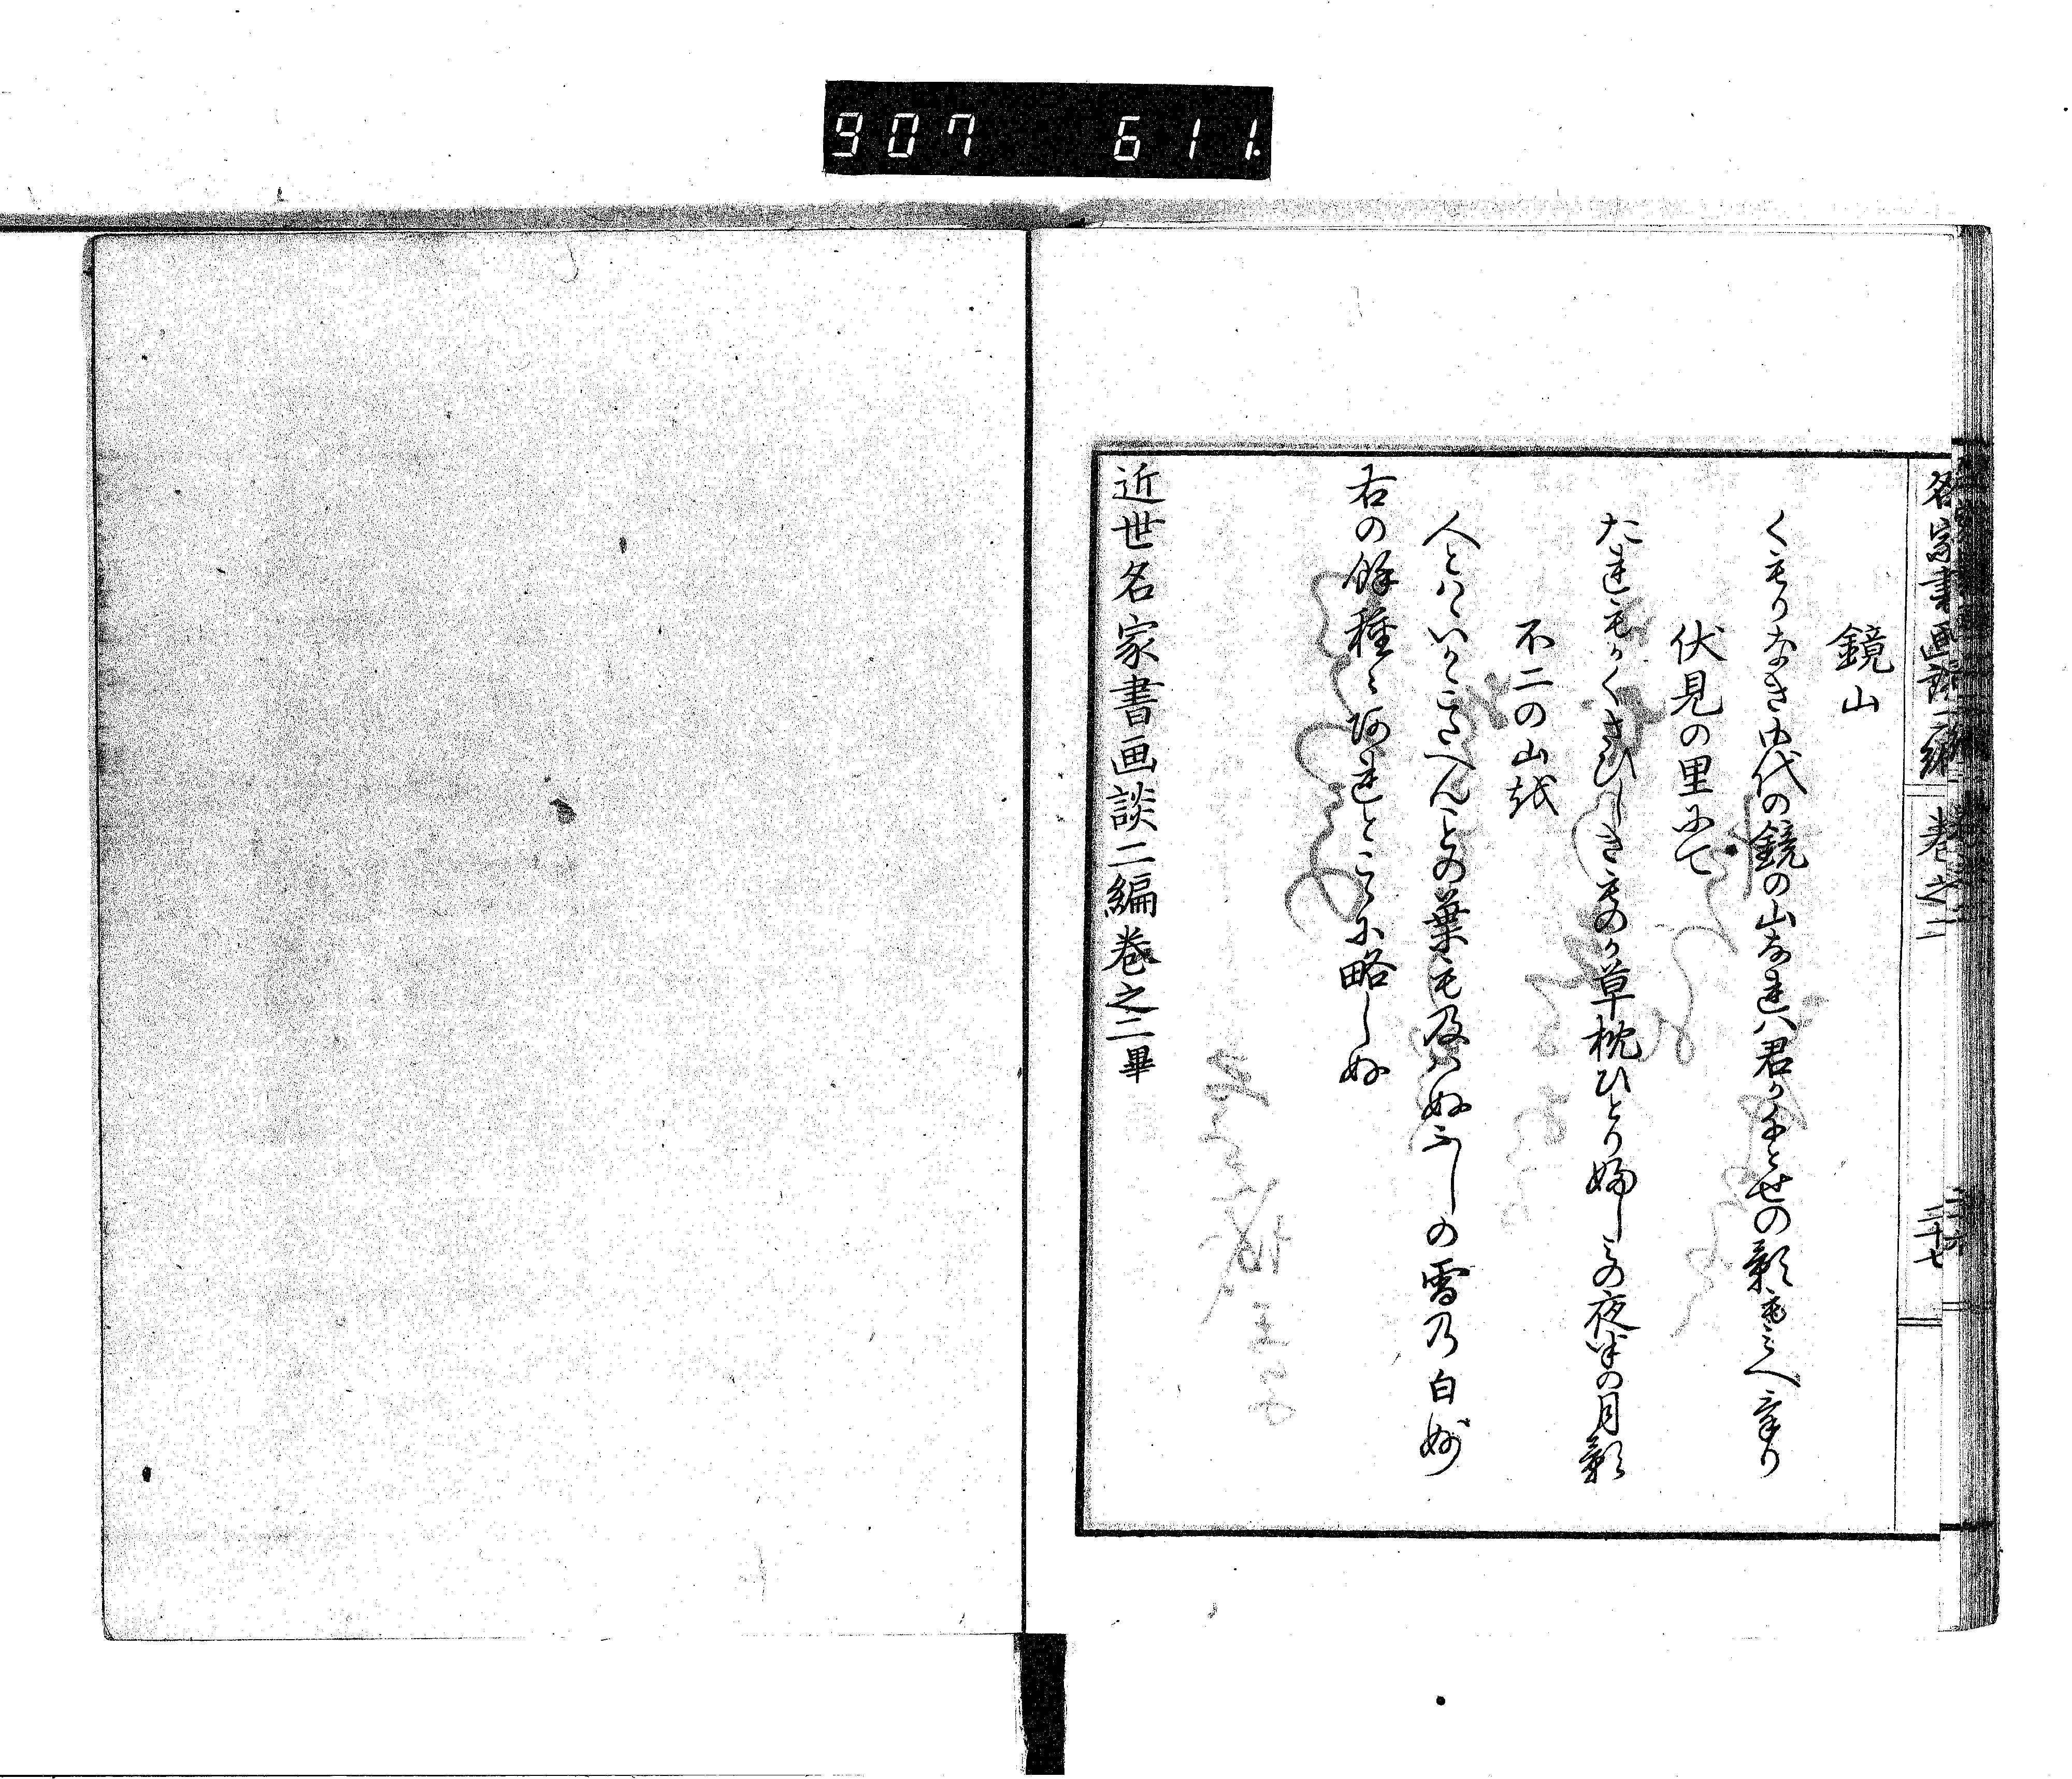 907 611
名家書画談二編 巻之二 二十七
鏡山
くもりなき御代の鏡の山なれハ君か千とせの影もミへけり
伏見の里にて
たれもかくさひしきものか草枕ひとり婦しミの夜半の月影
不二の山を
人とハヽいかヽこたへんことの葉も及ハぬふしの雪乃白妙
右の餘種々あれとこゝに略しぬ
近世名家書画談二編巻之二畢